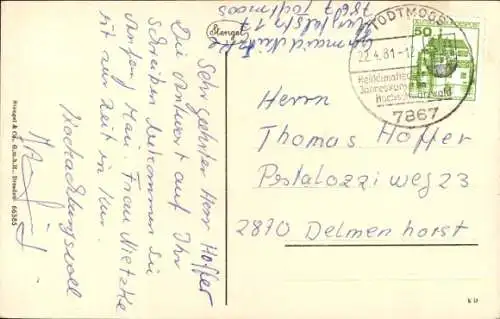 Sehr geehrter Herr Hoffer
Die Antwort auf Ihr
Schreiben bekommen Sie
Anfang Mai Frau Nietzke
ist zur Zeit in Kur.
Hochachtungsvoll
7867 Todtmoos
Stengel
TODTMOOS
22.4.81-12
Heilklimatischer
Jahreskurort
Hochschwarzwald
7867
50
Herrn
Thomas Hoffer
Pestalozziweg 23
2870 Delmenhorst
Stengel & Co., G.m.b.H., Dresden 66385